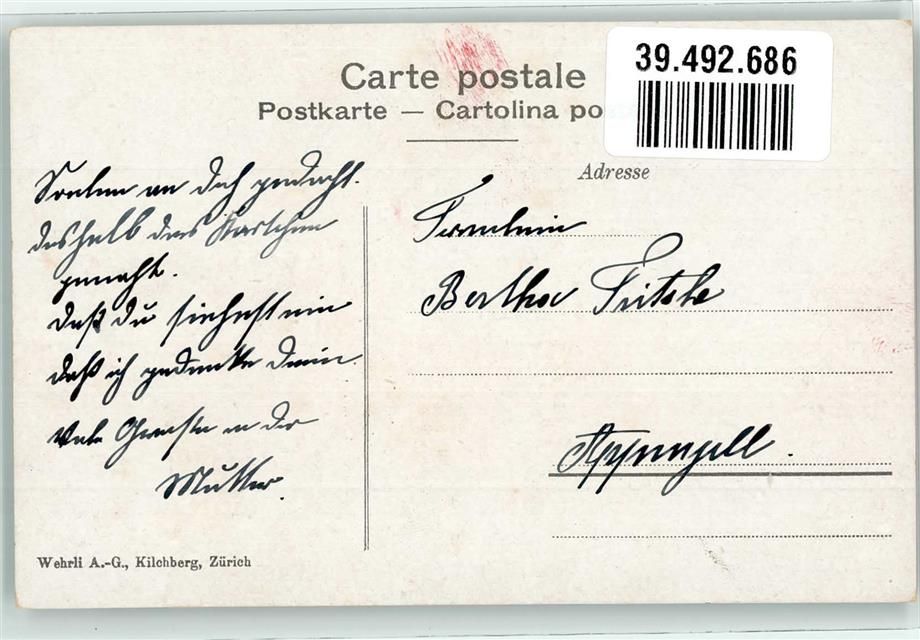 Carte postale
Postkarte — Cartolina po
39.492.686
Adresse
an dich gedacht.
deshalb das Kärtchen
gemacht.
Daß du siehest ein
daß ich gedenke Dein.
Viele Grüße an die
Mutter.
Fräulein
Bertha Fritsche
Appenzell.
Wehrli A.-G., Kilchberg, Zürich